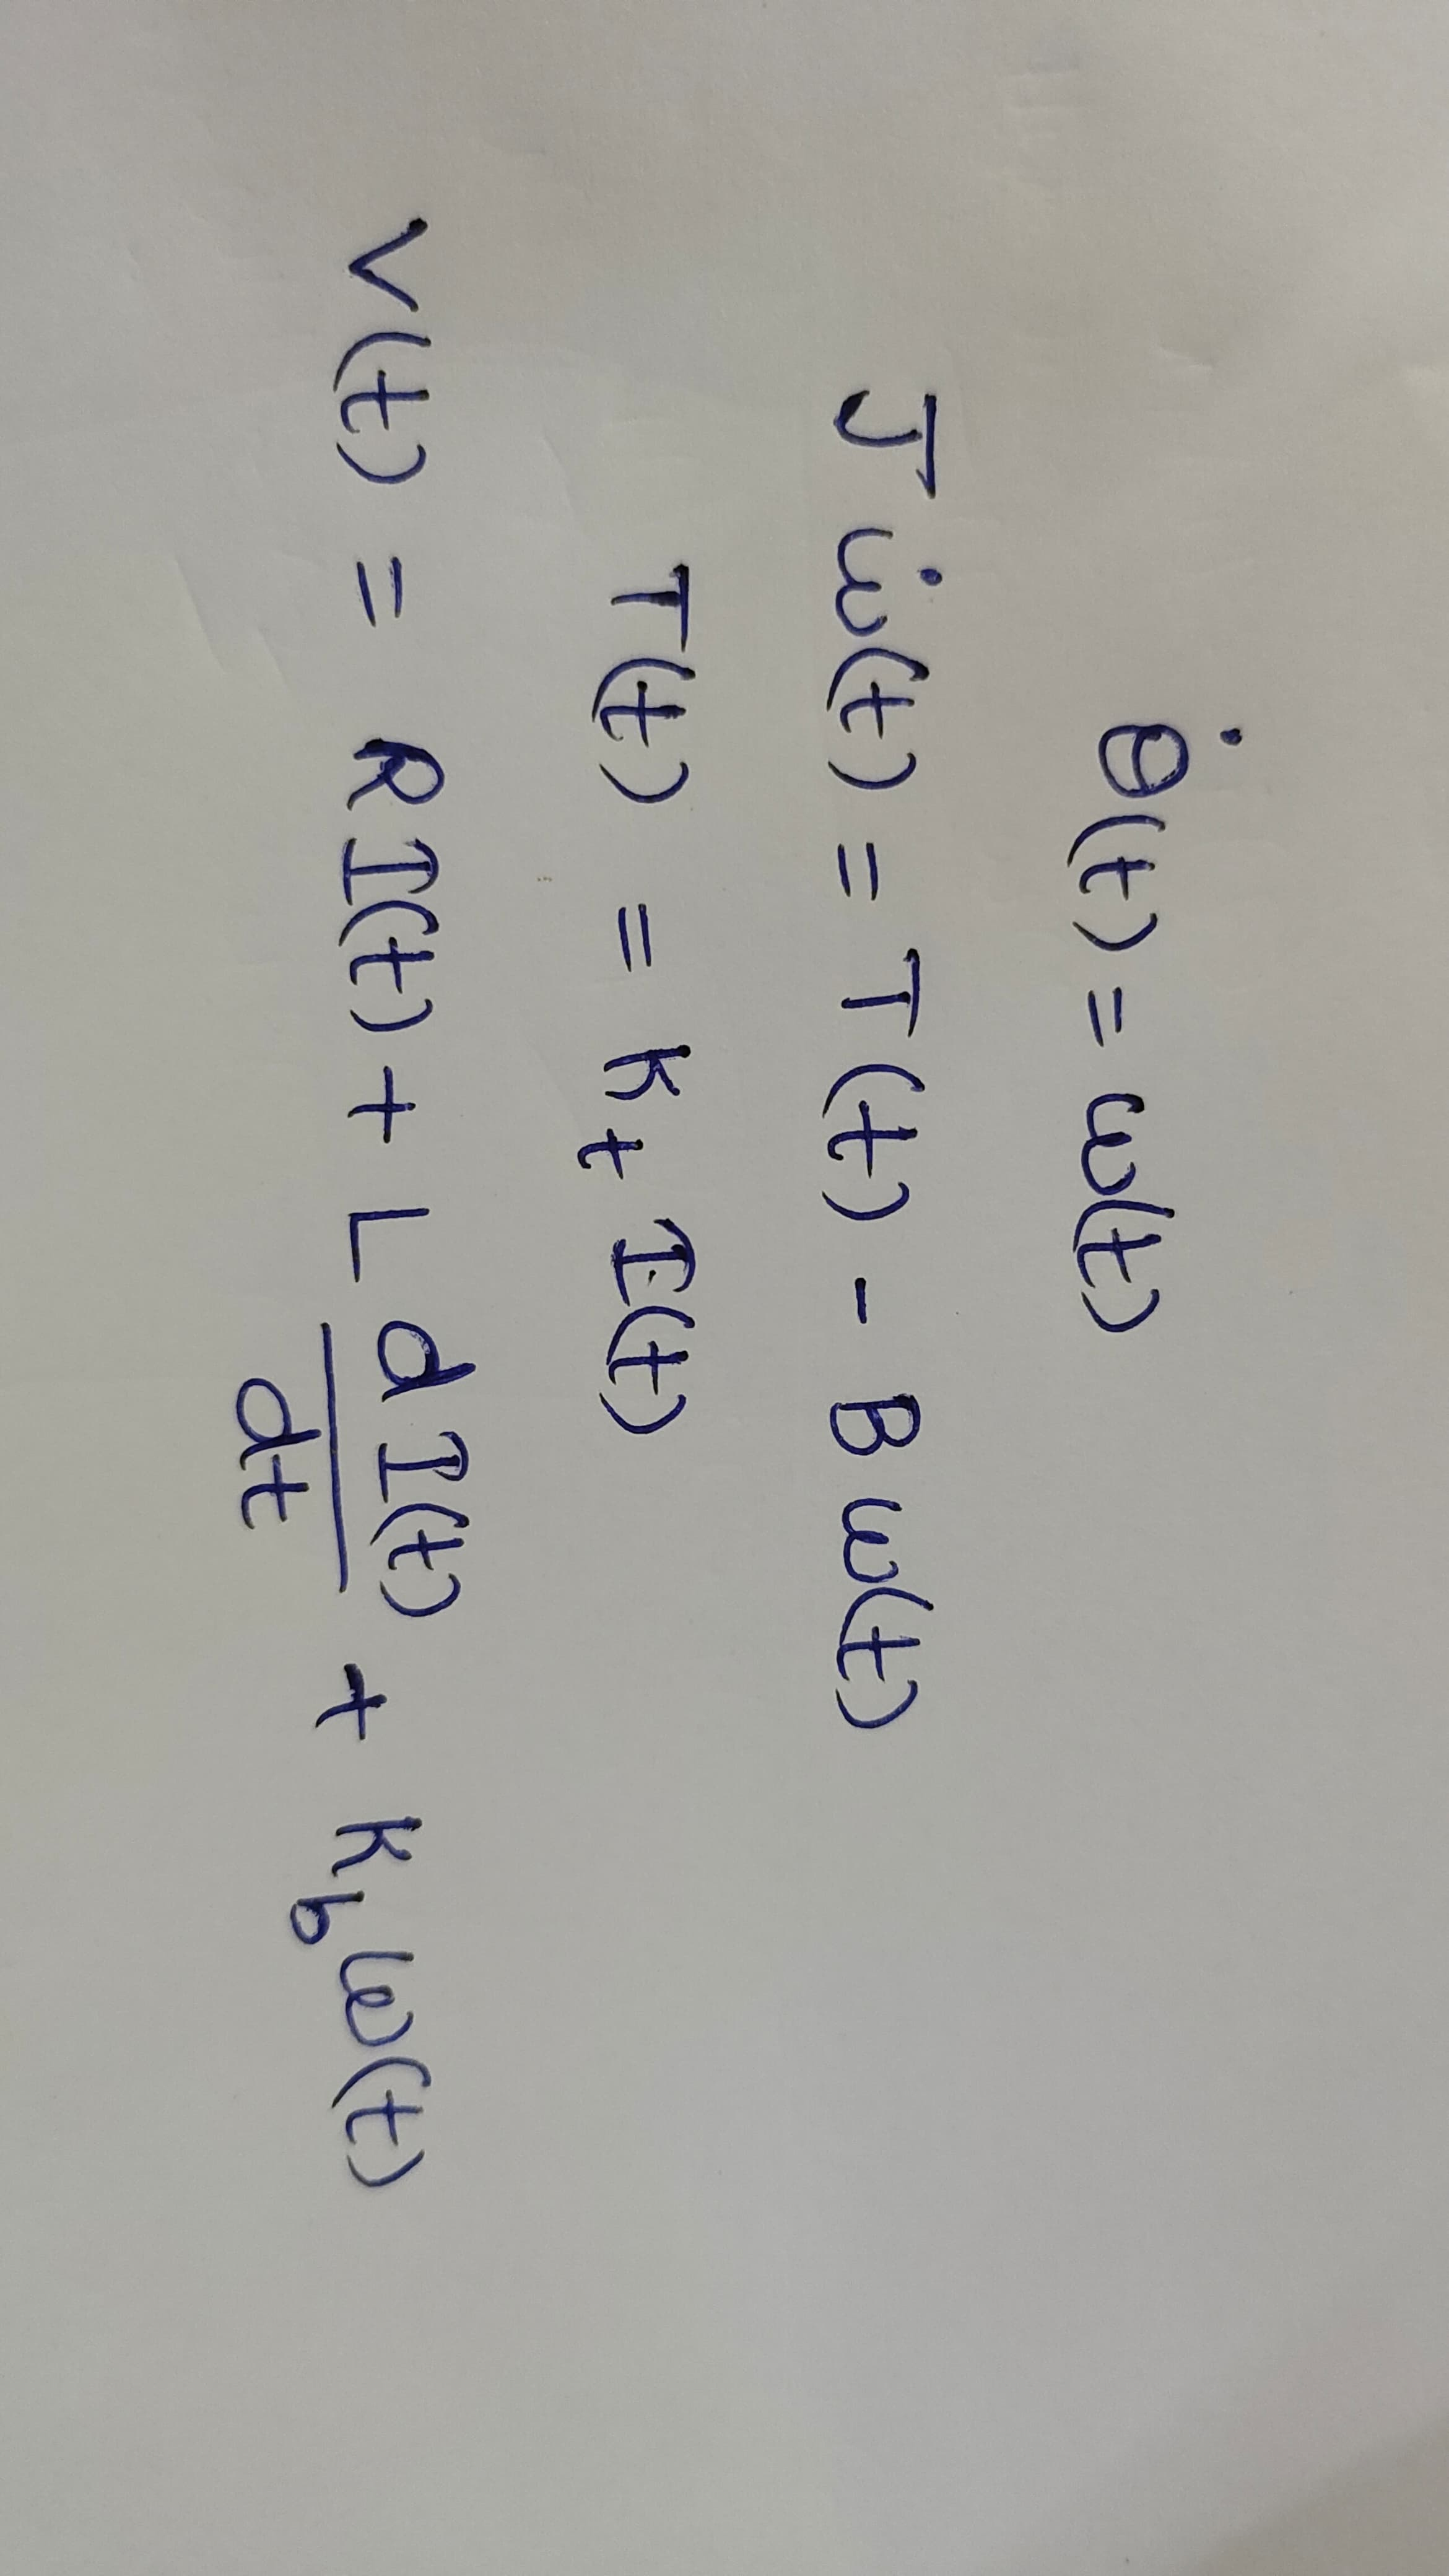 θ̇(t) = ω(t)
J ω̇(t) = T(t) - B ω(t)
T(t) = K_t I(t)
V(t) = R I(t) + L dI(t)/dt + K_b ω(t)